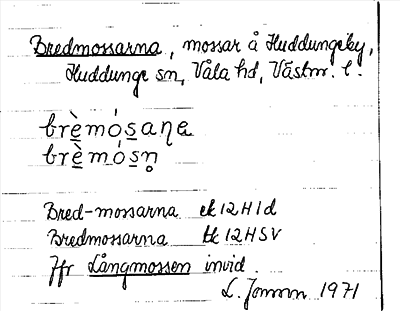 Bredmossarna, mossar å Huddungeby,
Huddunge sn, Våla hd, Västm. l.
brèmósaɳa
brèmósn̥
Bred-mossarna ek 12H1d
Bredmossarna tk 12HSV
Jfr Långmossen invid.
L. Jonsson 1971